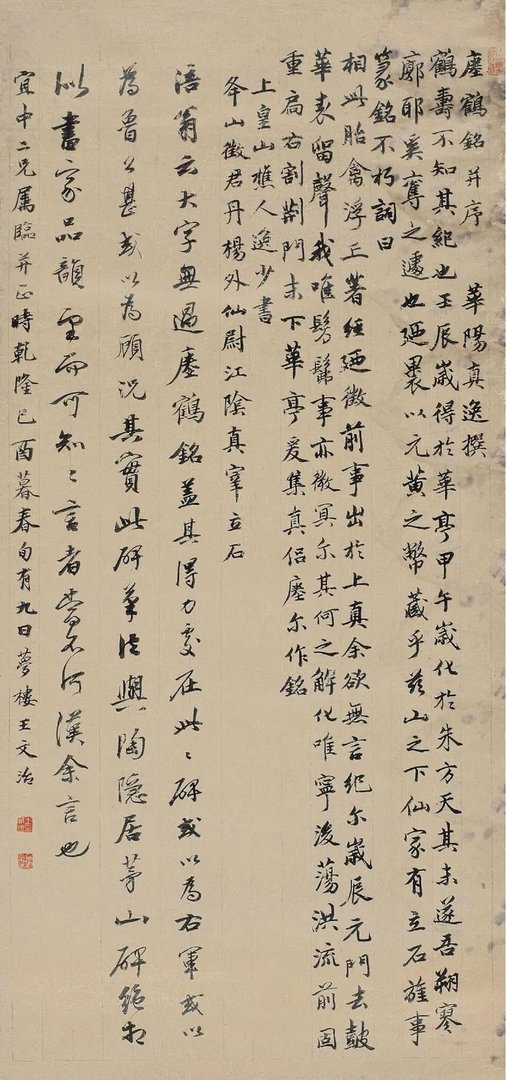 瘞鶴銘并序　華陽真逸撰
鶴壽不知其紀也壬辰歲得於華亭甲午歲化於朱方天其未遂吾翔寥
廓耶奚奪之遽也廼裹以元黃之幣藏乎茲山之下仙家有立石旌事
篆銘不朽詞曰
相此胎禽浮丘著經廼徵前事出於上真余欲無言紀尔歲辰元門去鼓
華表留聲我唯髣髴事亦微冥尔其何之解化唯寧後蕩洪流前固
重扃右割荆門未下華亭爰集真侣瘞尔作銘
上皇山樵人逸少書
夅山徵君丹楊外仙尉江陰真宰立石
涪翁云大字無過瘞鶴銘蓋其得力處在此〻碑或以為右軍或以
為魯公甚或以為顧況其實此碑筆法與陶隱居茅山碑絶相
似書家品韻望而可知〻言者當不河漢余言也
宜中二兄属臨并正時乾隆己酉暮春旬有九日夢樓王文治